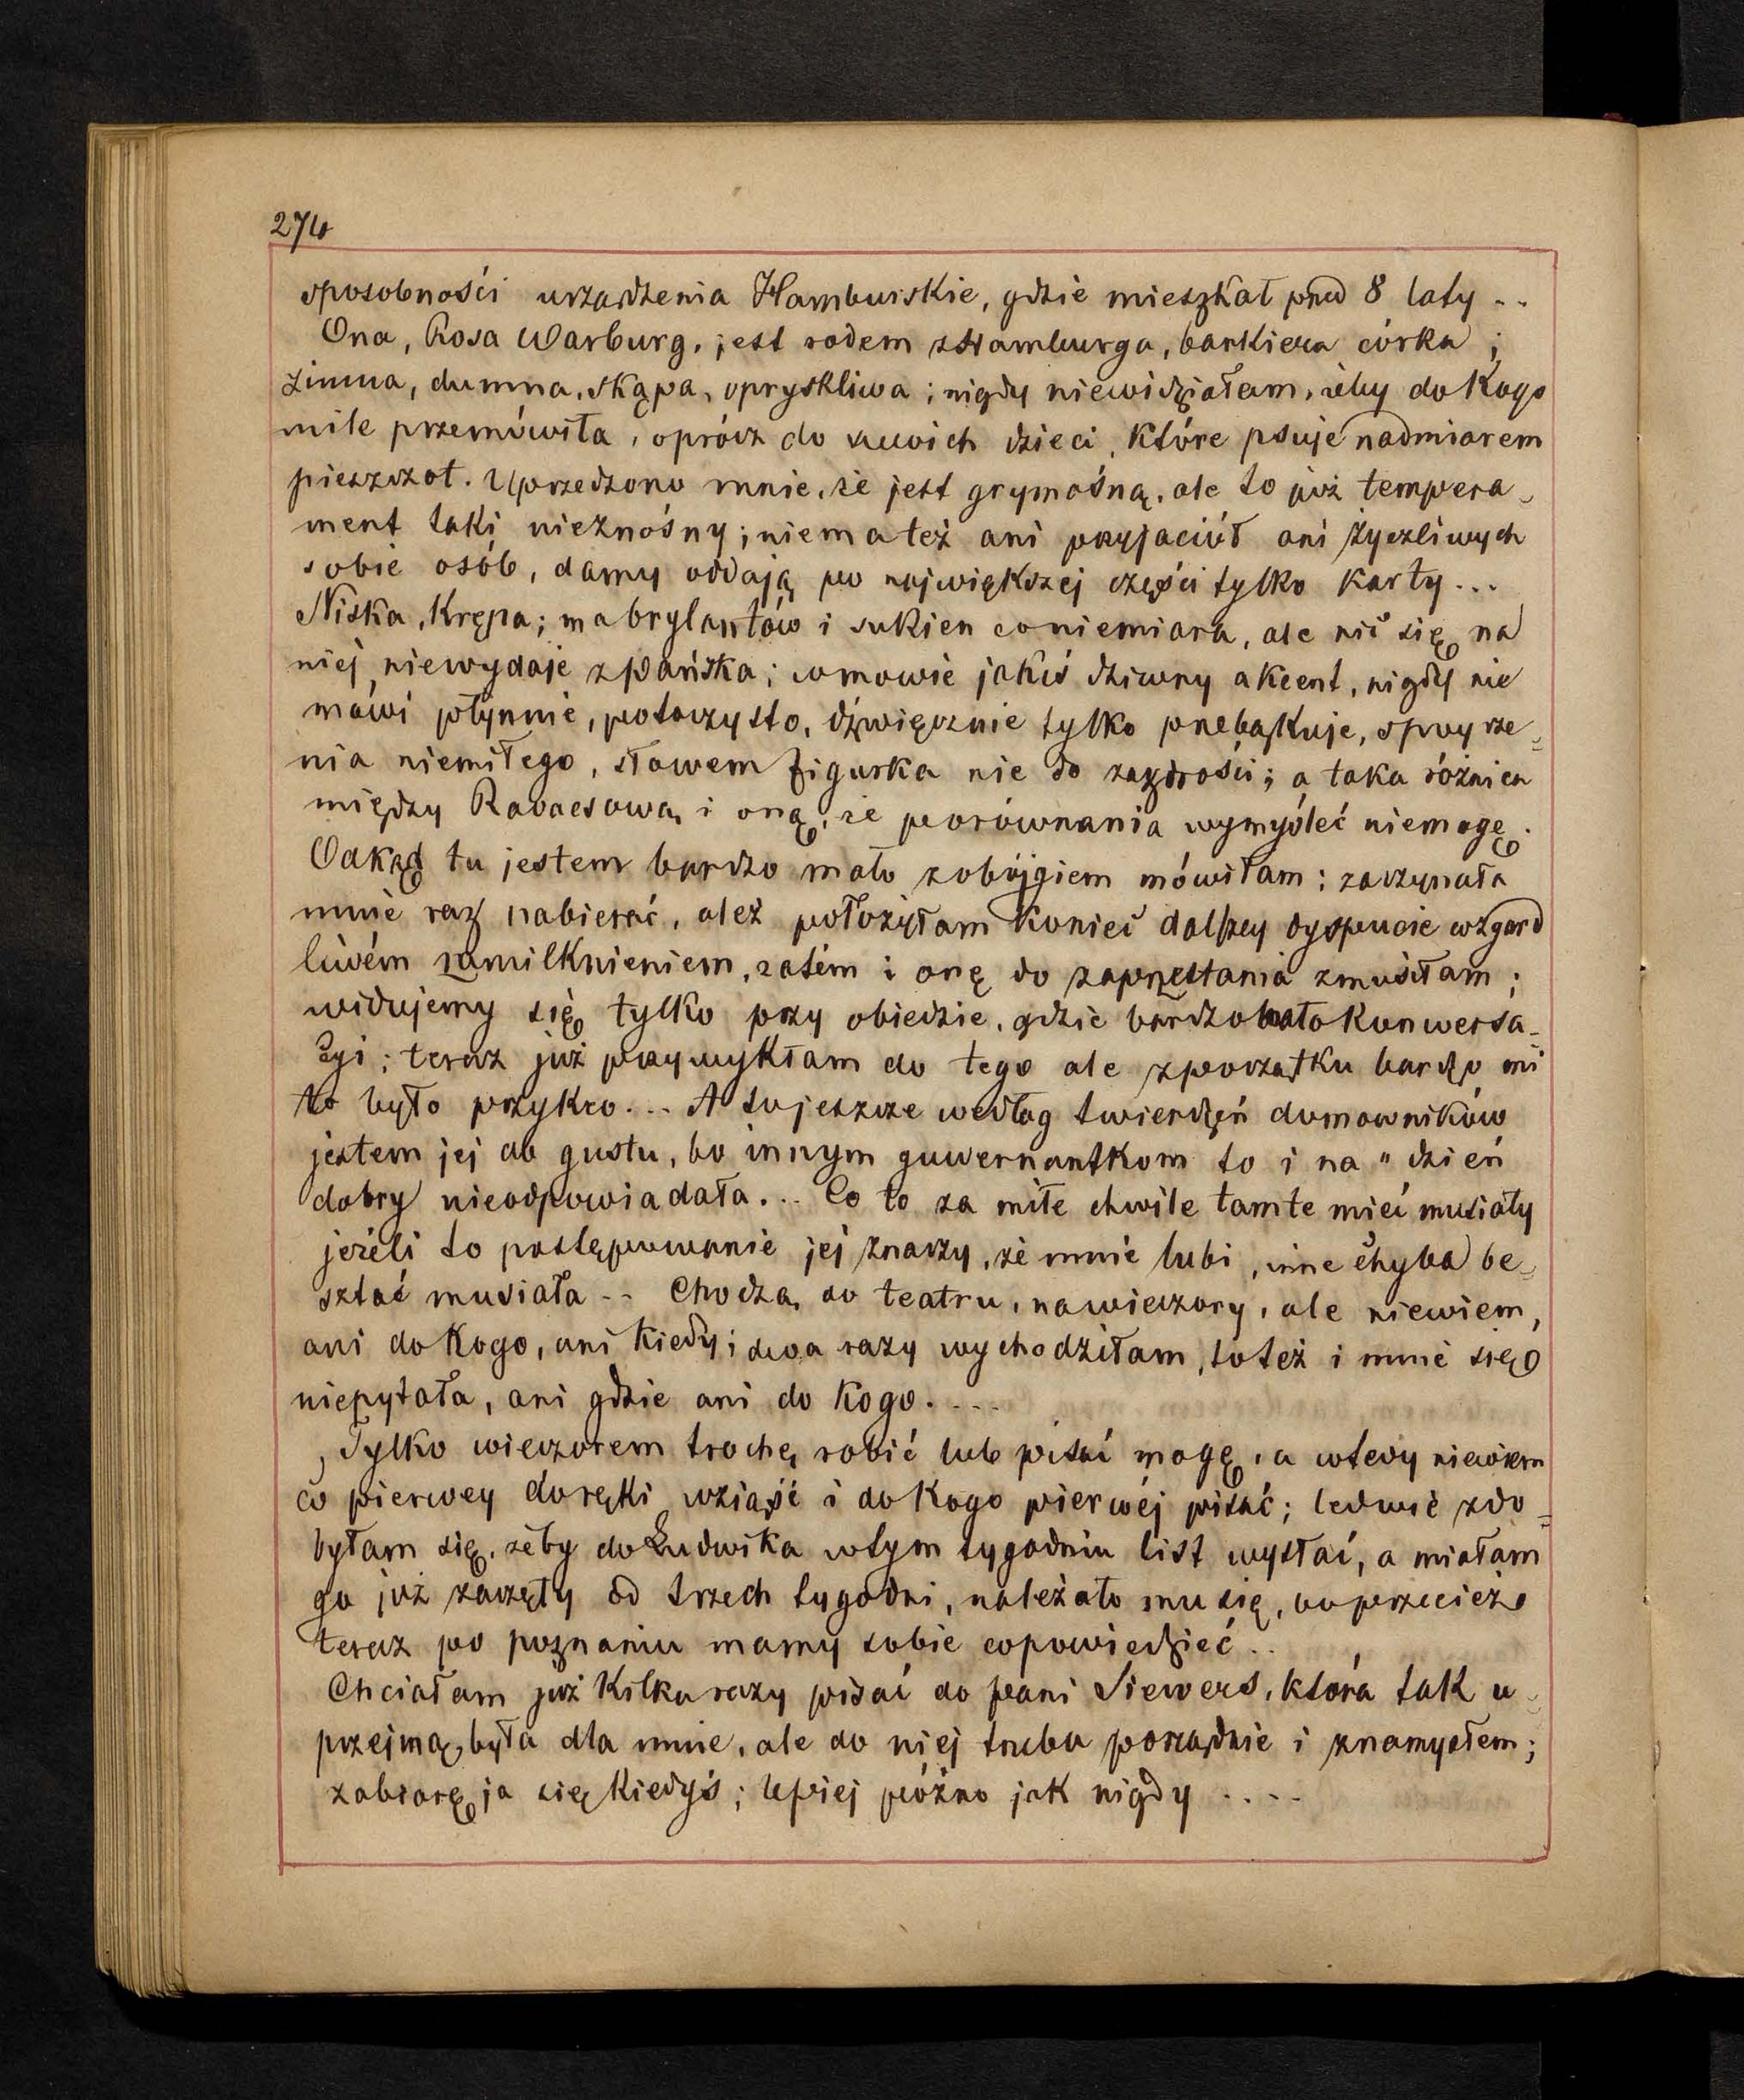 274
sposobności urządzenia Hamburskie, gdzie mieszkał przed 8 laty ..
Ona, Rosa Warburg, jest rodem z Hamburga, bankiera córka ;
zimna, dumna, skąpa, opryskliwa ; nigdy niewidziałam, żeby do kogo
mile przemówiła, oprócz do swoich dzieci, które psuje nadmiarem
pieszczot. Uprzedzono mnie, że jest grymaśną, ale to już tempera-
ment taki nieznośny ; niema też ani przyjaciół ani życzliwych
sobie osób, damy oddają po największej części tylko karty ...
Niska, krępa ; ma brylantów i sukien coniemiara, ale nic się na
niej niewydaje z pańska ; w mowie jakiś dziwny akcent, nigdy nie
mówi płynnie, potoczysto, dźwięcznie tylko przebąkuje, spojrze=
nia niemiłego, słowem figurka nie do zazdrości ; a taka różnica
między Ravacsową i oną, że porównania wymyśleć niemogę.
Odkąd tu jestem bardzo mało z obójgiem mówiłam ; zaczynała
mnie raz nabierać, ależ położyłam koniec dalszej dyspucie wzgard
liwém zamilknieniem, zatém i onę do zaprzestania zmusiłam ;
widujemy się tylko przy obiedzie, gdzie bardzo mało konwersa-
cyi ; teraz już przywykłam do tego ale z początku bardzo mi
to było przykro... A tu jeszcze według twierdzeń domowników
jestem jej do gustu, bo innym guwernantkom to i na " dzień
dobry nieodpowiadała... Co to za miłe chwile tamte mieć musiały
jeżeli to postępowanie jej znaczy, że mnie lubi, inne chyba be=
sztać musiała .. Chodzą do teatru, na wieczory, ale niewiem,
ani do kogo, ani kiedy ; dwa razy wychodziłam, toteż i mnie się
niepytała, ani gdzie ani do kogo. ...
Tylko wieczorem trochę robić lub pisać mogę, a wtedy niewiem
co pierwey do ręki wziąść i do kogo pierwéj pisać ; ledwie zdo=
byłam się, żeby do Ludwika w tym tygodniu list wysłać, a miałam
go już zaczęty od trzech tygodni, należało mu się, bo przecież
teraz po poznaniu mamy sobie co powiedzieć ..
Chciałam już kilka razy pisać do pani Siewers, która tak u=
przejmą była dla mnie, ale do niej trzeba porządnie i z namysłem ;
zabiorę ja się kiedyś ; lepiej późno jak nigdy ....